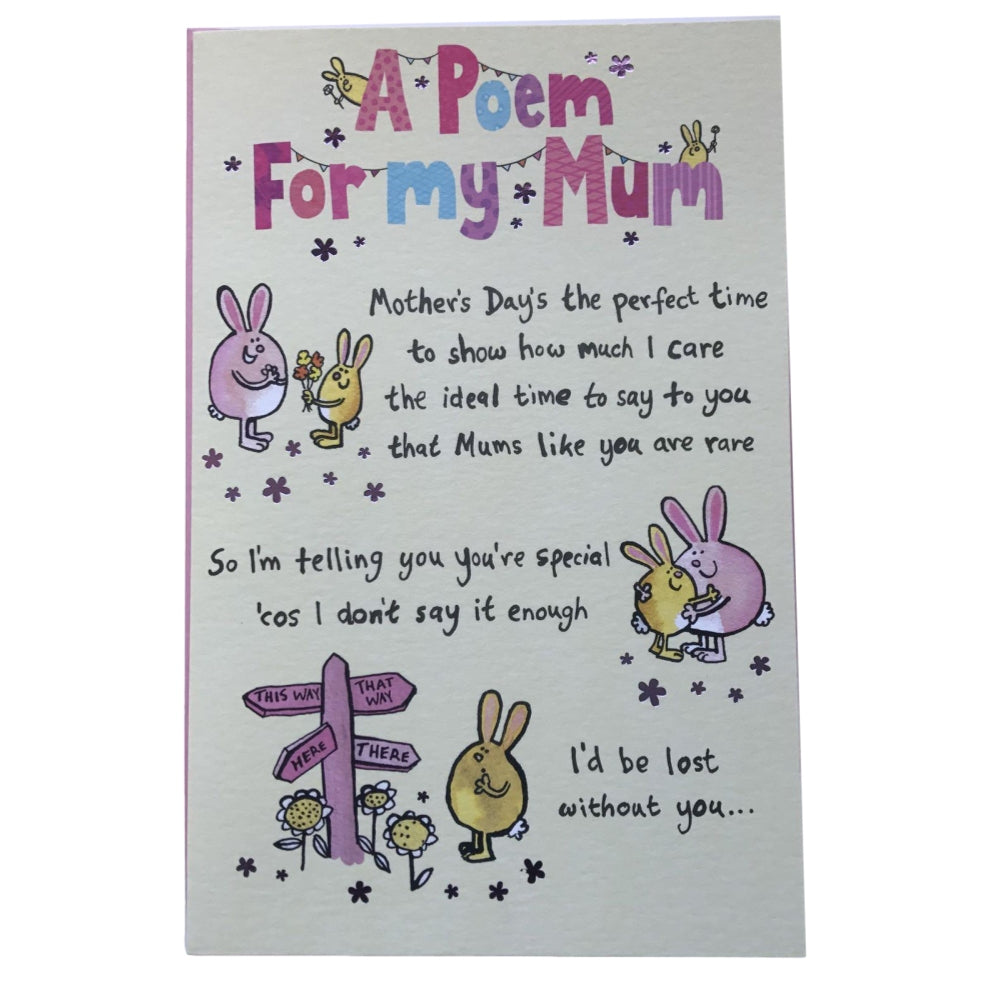 A Poem
For my Mum
Mother's Day's the perfect time
to show how much I care
the ideal time to say to you
that Mums like you are rare
So I'm telling you you're special
'cos I don't say it enough
THIS WAY
THAT WAY
HERE
THERE
I'd be lost
without you...